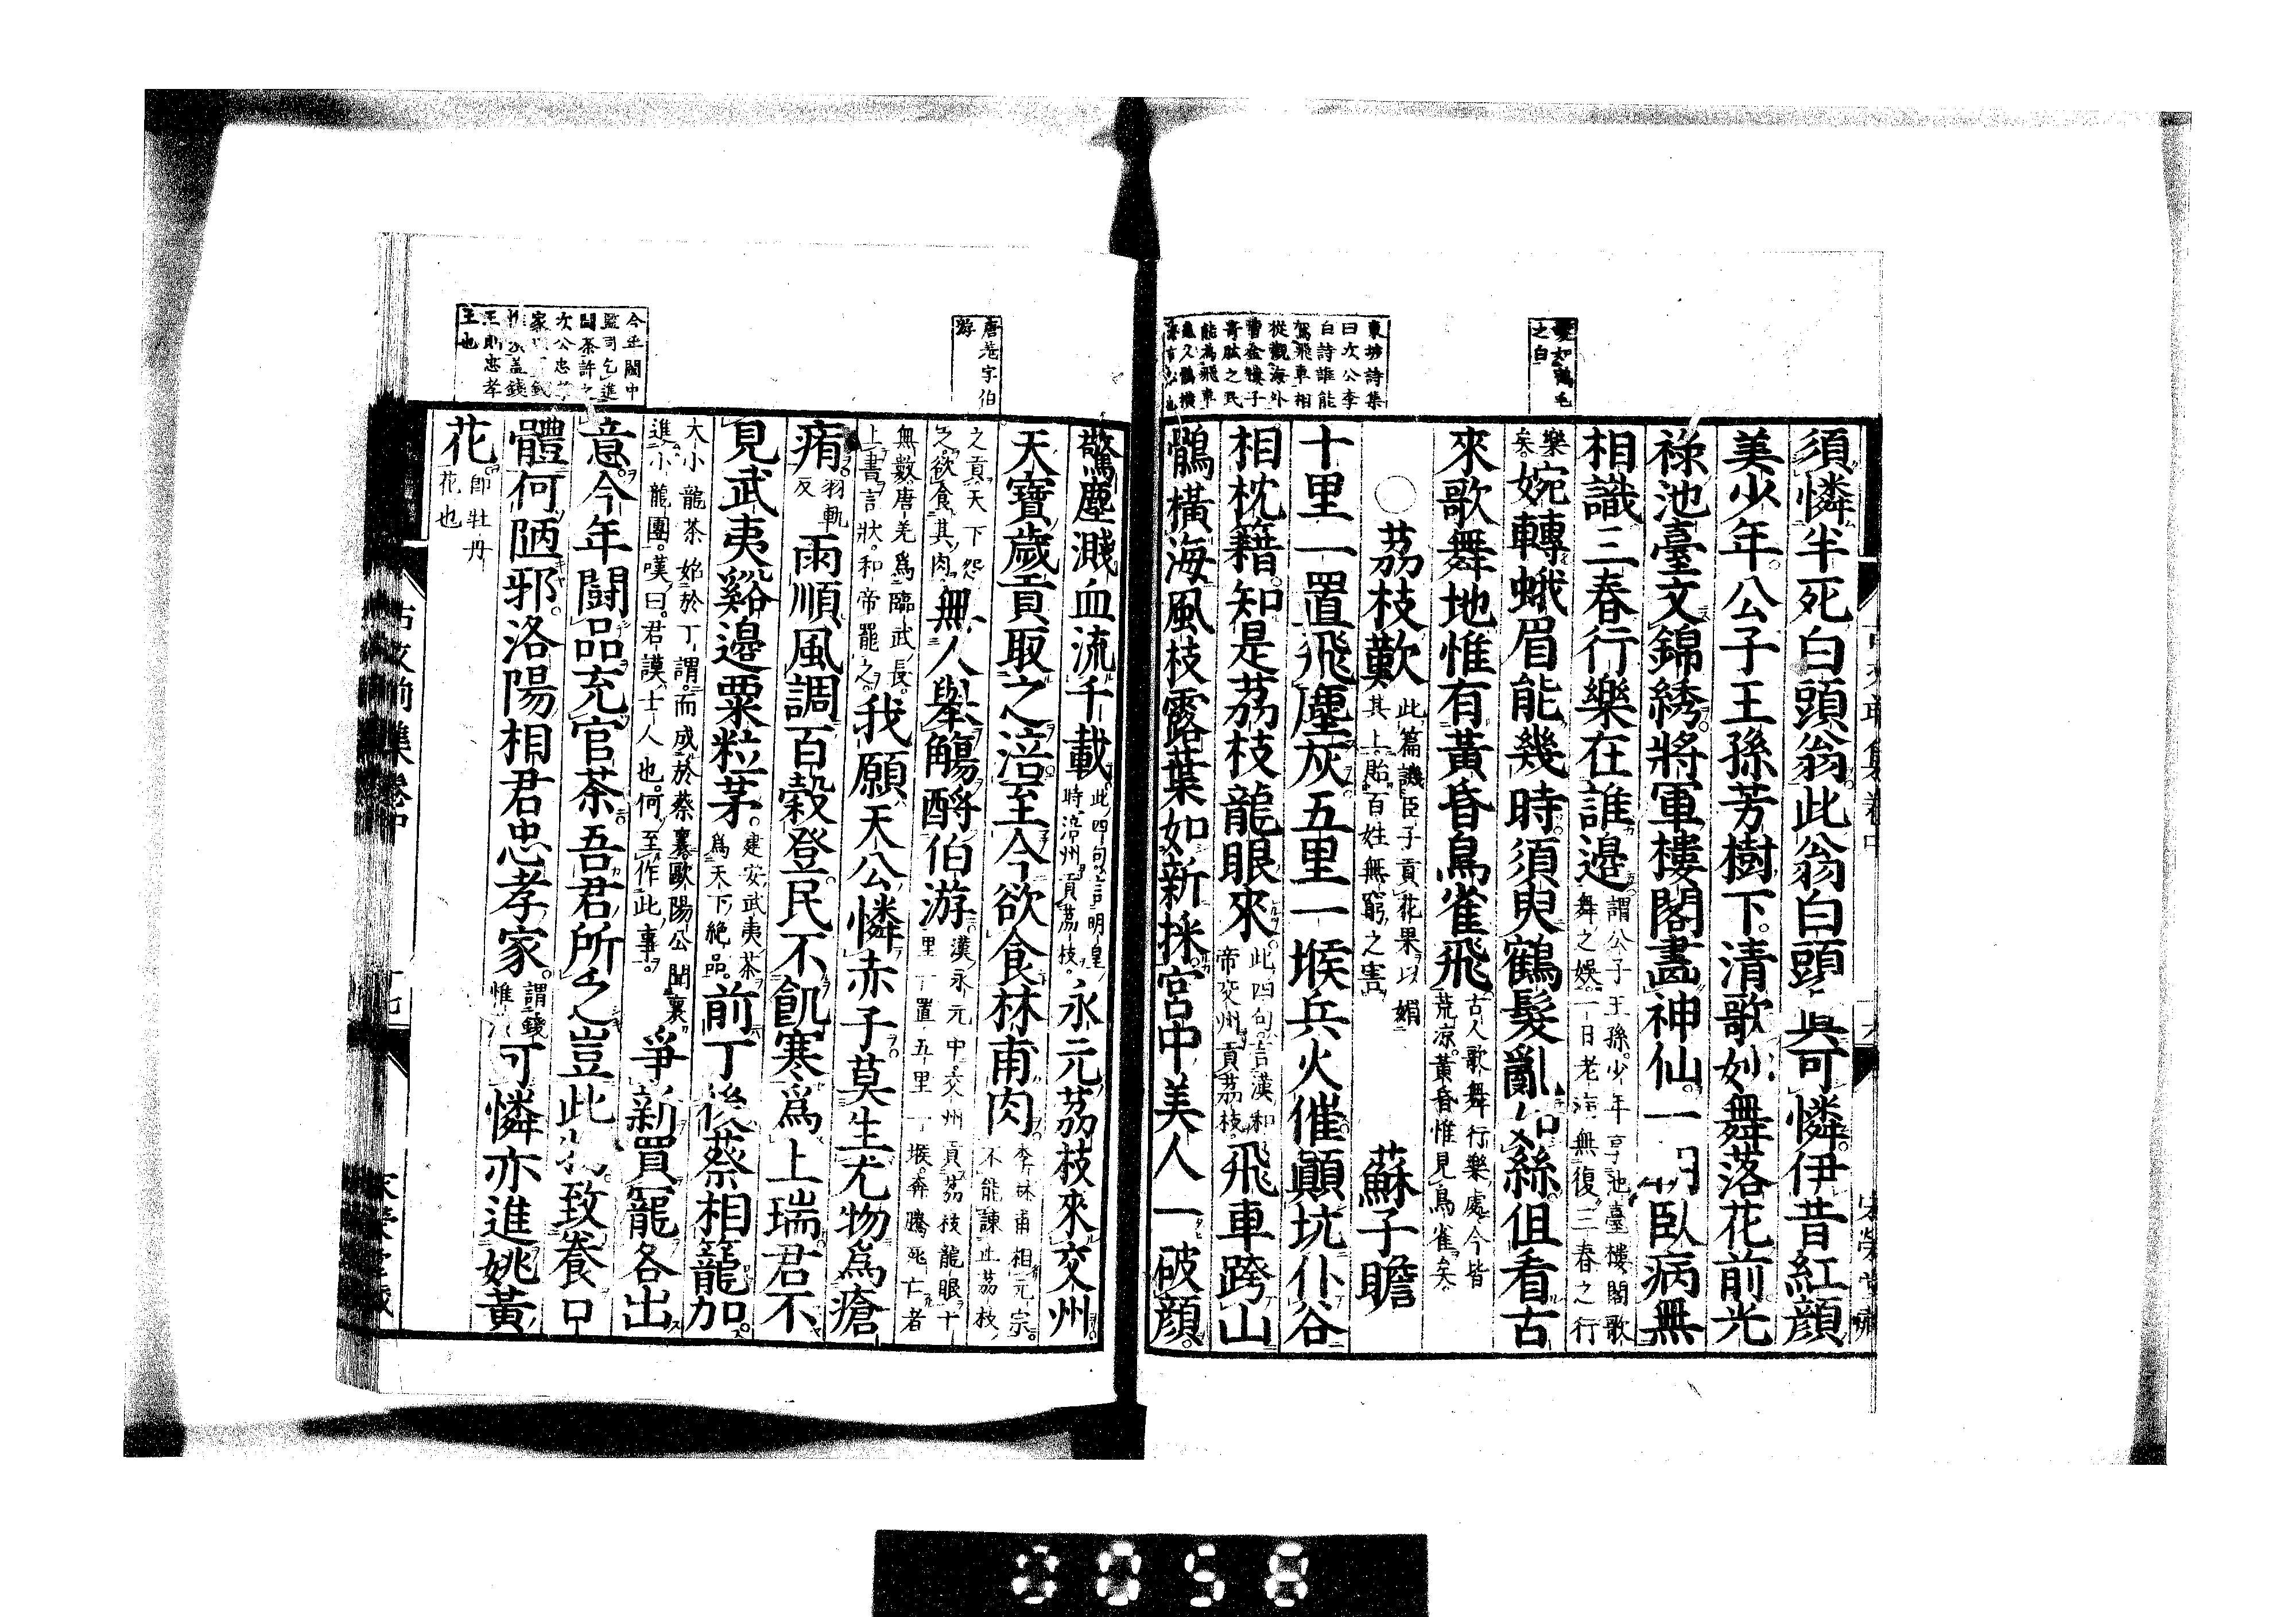 鬢如鶴毛
之白
須憐半死白頭翁此翁白頭眞可憐伊昔紅顏
美少年公子王孫芳樹下清歌妙舞落花前光
祿池臺文錦綉將軍樓閣畫神仙一朝臥病無
相識三春行樂在誰邊謂公子王孫少年享池臺樓閣歌
舞之娛一日老病無復三春之行
樂矣婉轉蛾眉能幾時須臾鶴髮亂如絲但看古
來歌舞地惟有黃昏鳥雀飛古人歌舞行樂處今皆
荒涼黃昏惟見鳥雀矣
○荔枝歎此篇譏臣子貢花果以媚
其上貽百姓無窮之害
蘇子瞻
東坡詩集
曰次公李
白詩誰能
駕飛車相
從觀海外
十里一置飛塵灰五里一堠兵火催顚坑仆谷
相枕籍知是荔枝龍眼來此四句言漢和
帝交州貢荔枝飛車跨山
鶻橫海風枝露葉如新採宮中美人一破顏
驚塵濺血流千載此四句言明皇
時涪州貢荔枝永元荔枝來交州
天寶歲貢取之涪至今欲食林甫肉李林甫相元宗
不能諫止荔枝
之貢天下怨
之欲食其肉無人舉觴酹伯游漢永元中交州貢荔枝龍眼十
里一置五里一堠奔騰死亡者
無數唐羌爲臨武長
上書言狀和帝罷之我願天公憐赤子莫生尤物爲瘡
唐羌字伯
游
痏羽軌
反雨順風調百穀登民不飢寒爲上瑞君不
見武夷谿邊粟粒芽建安武夷茶
爲天下絕品前丁後蔡相籠加
大小龍茶始於丁謂而成於蔡襄歐陽公聞襄
進小龍團嘆曰君謨士人也何至作此事爭新買寵各出
意今年鬪品充官茶吾君所乏豈此物致養口
今年閩中
監司乞進
鬪茶許之
體何陋邪洛陽相君忠孝家謂錢
惟可憐亦進姚黃
花即牡丹
花也
古文前集卷中
0058